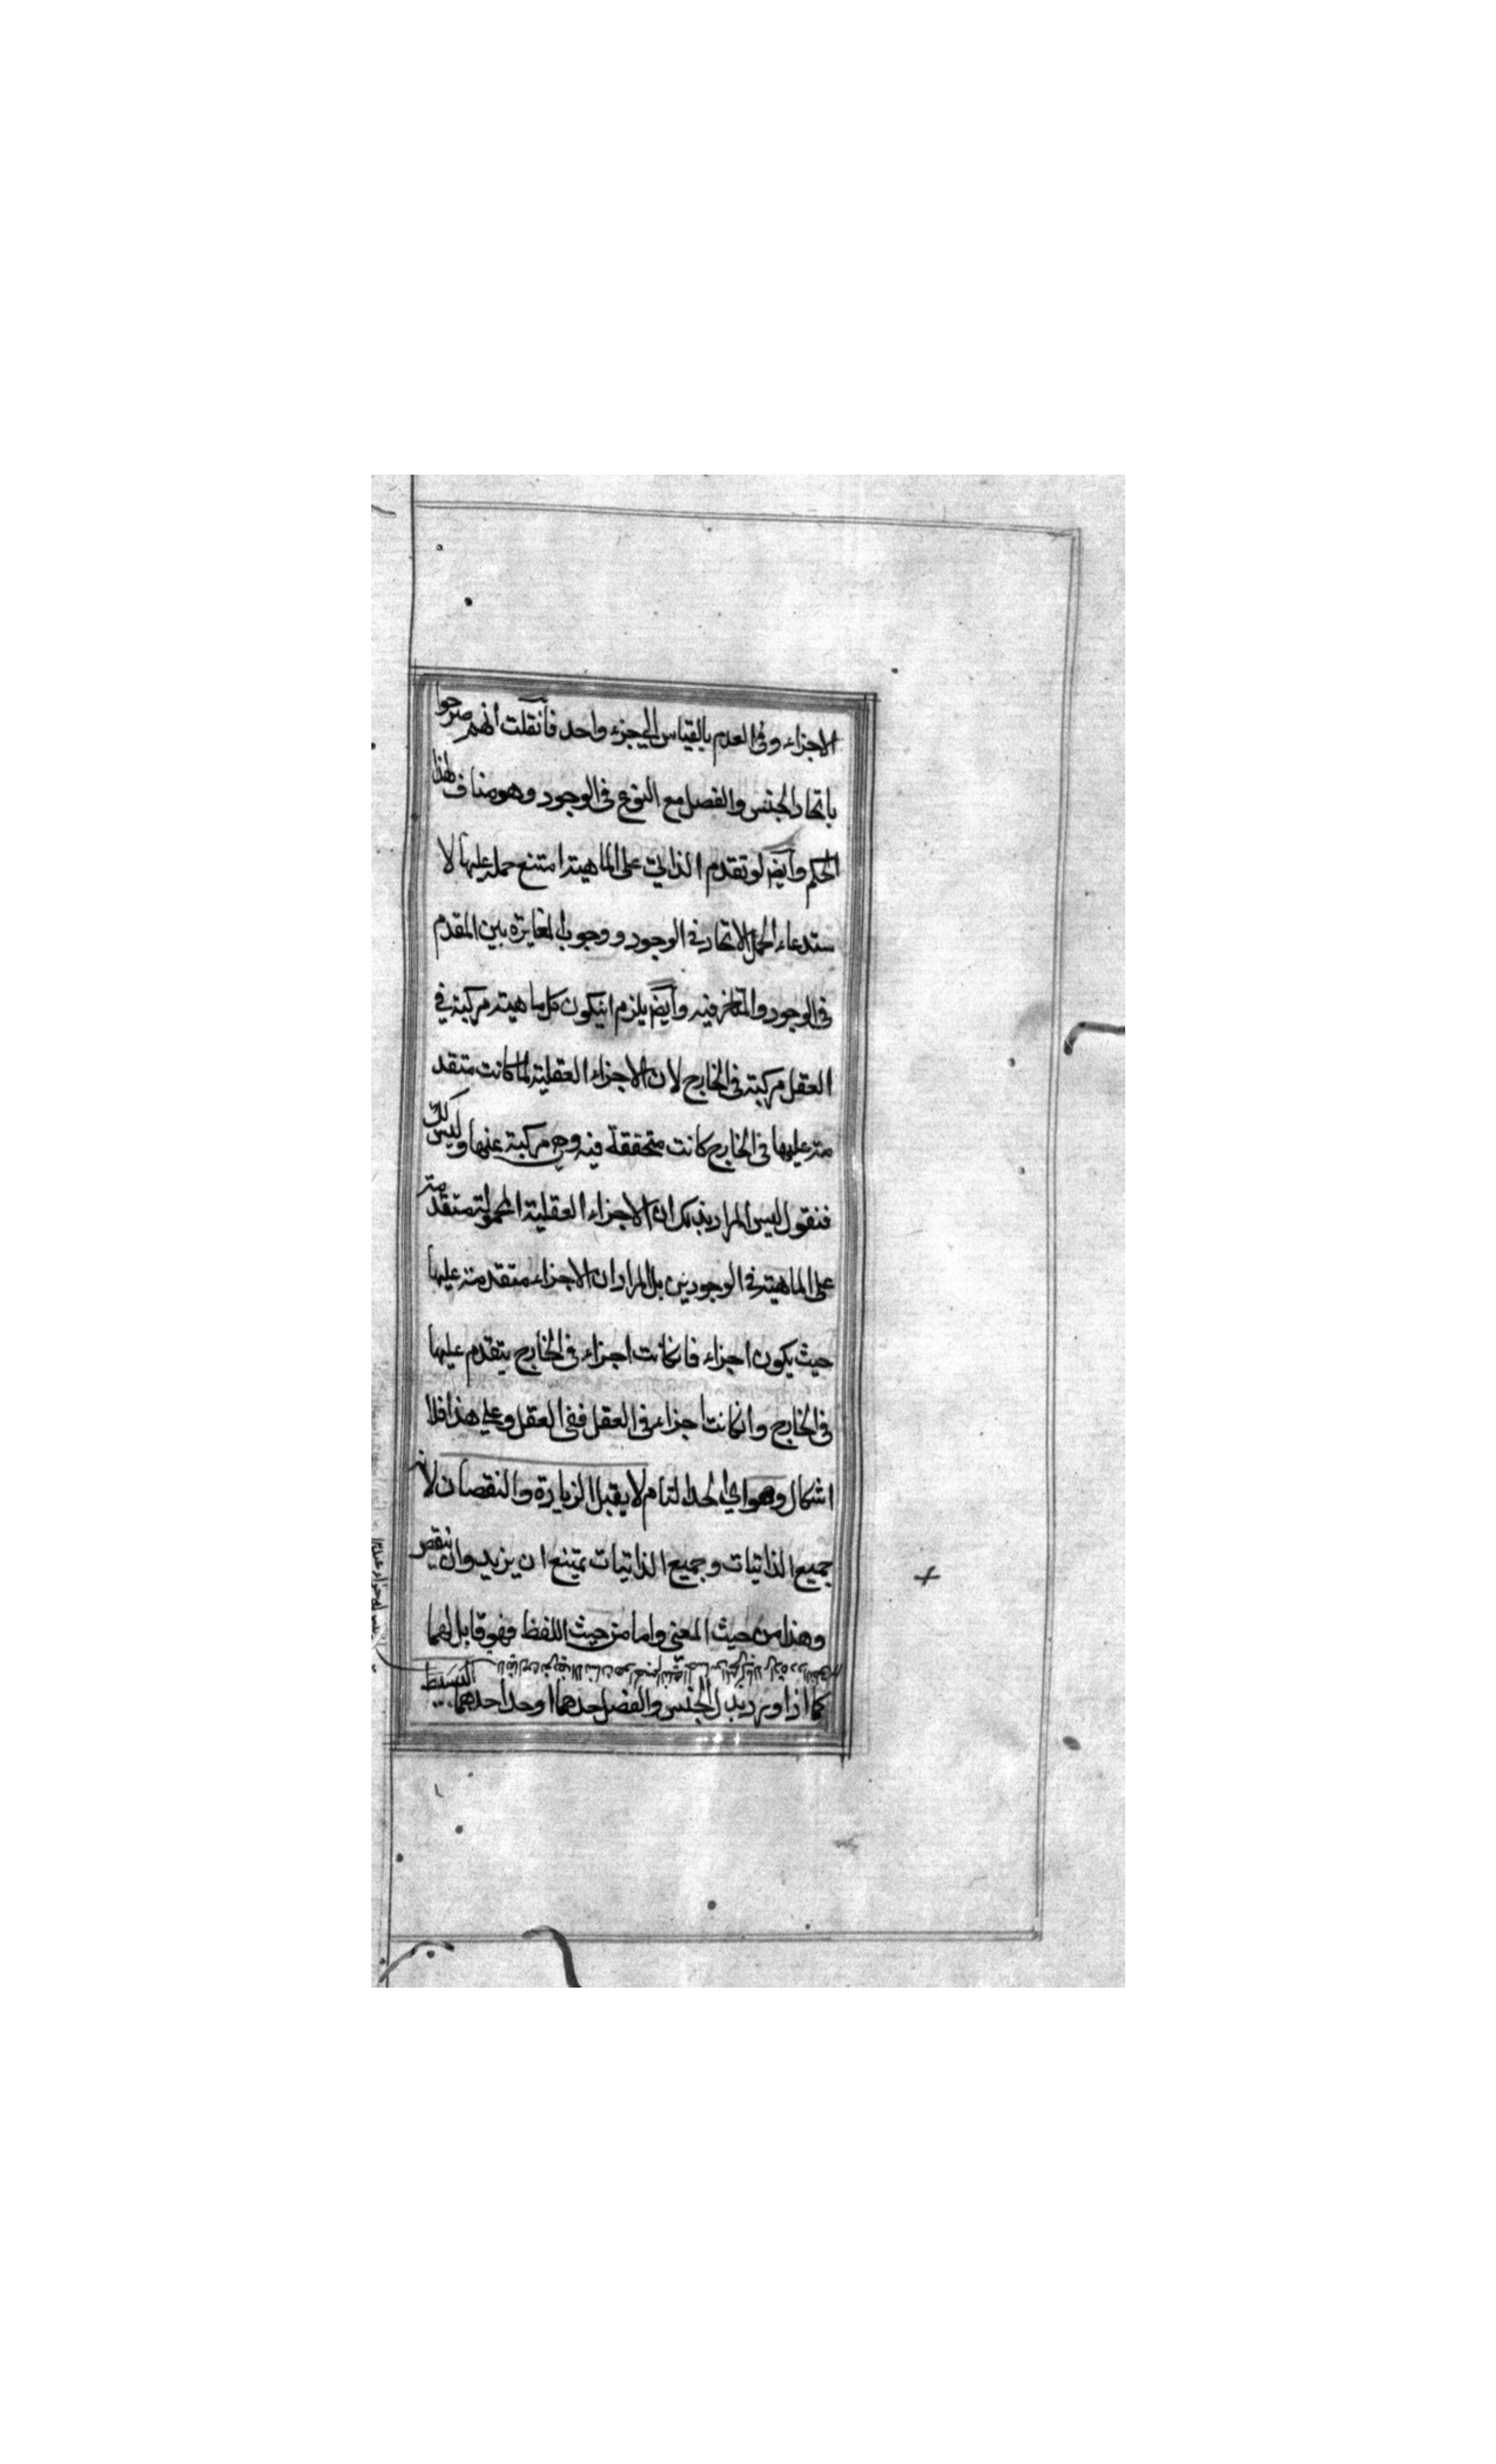 الاجزاء وفى العدم بالقياس الى جزء واحد فانقلت انهم صرحوا
باتحاد الجنس والفصل مع النوع فى الوجود وهو مناف لهذا
الحكم وايض لو تقدم الذاتى على الماهية امتنع حمله عليها لا
ستدعاء الحمل الاتحاد فى الوجود ووجوب المغايرة بين المقدم
فى الوجود والمتاخر فيه وايض يلزم انيكون كل ماهية مركبة فى
العقل مركبة فى الخارج لان الاجزاء العقلية لما كانت متقد
مة عليها فى الخارج كانت متحققة فيه وهى مركبة عنها وليس كك
فنقول ليس المراد بذلك ان الاجزاء العقلية المحمولة متقدمة
على الماهية فى الوجودين بل المراد ان الاجزاء متقدمة عليها
حيث يكون اجزاء فانكانت اجزاء فى الخارج يتقدم عليها
فى الخارج وانكانت اجزاء فى العقل ففى العقل وعلى هذا فلا
اشكال وهو اى الحد التام لا يقبل الزيادة والنقصان لانه
جميع الذاتيات وجميع الذاتيات يمتنع ان يزيد وان ينقص
وهذا من حيث المعنى واما من حيث اللفظ فهو قابل لهما
كما اذا اورد بدل الجنس والفصل حدهما او حد احدهما
البسيط